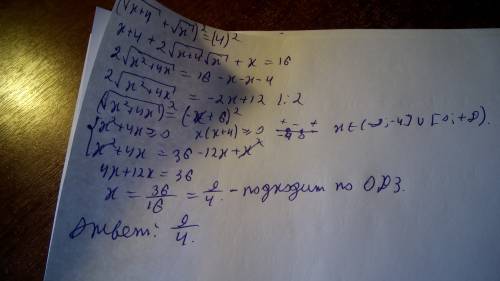 (√x+4 + √x)² = (4)²
x+4+2√x+4 √x + x = 16
2√x²+4x = 16 -x-x-4
2√x²+4x = -2x+12 |:2
(√x²+4x)² = (-x+6)²
{ x²+4x ≥ 0 x(x+4) ≥ 0 + - + -4 0 x∈(-∞;-4]∪[0;+∞).
x²+4x = 36 -12x+x²
4x+12x = 36
x = 36/16 = 9/4 - подходит по ОДЗ.
Ответ: 9/4.